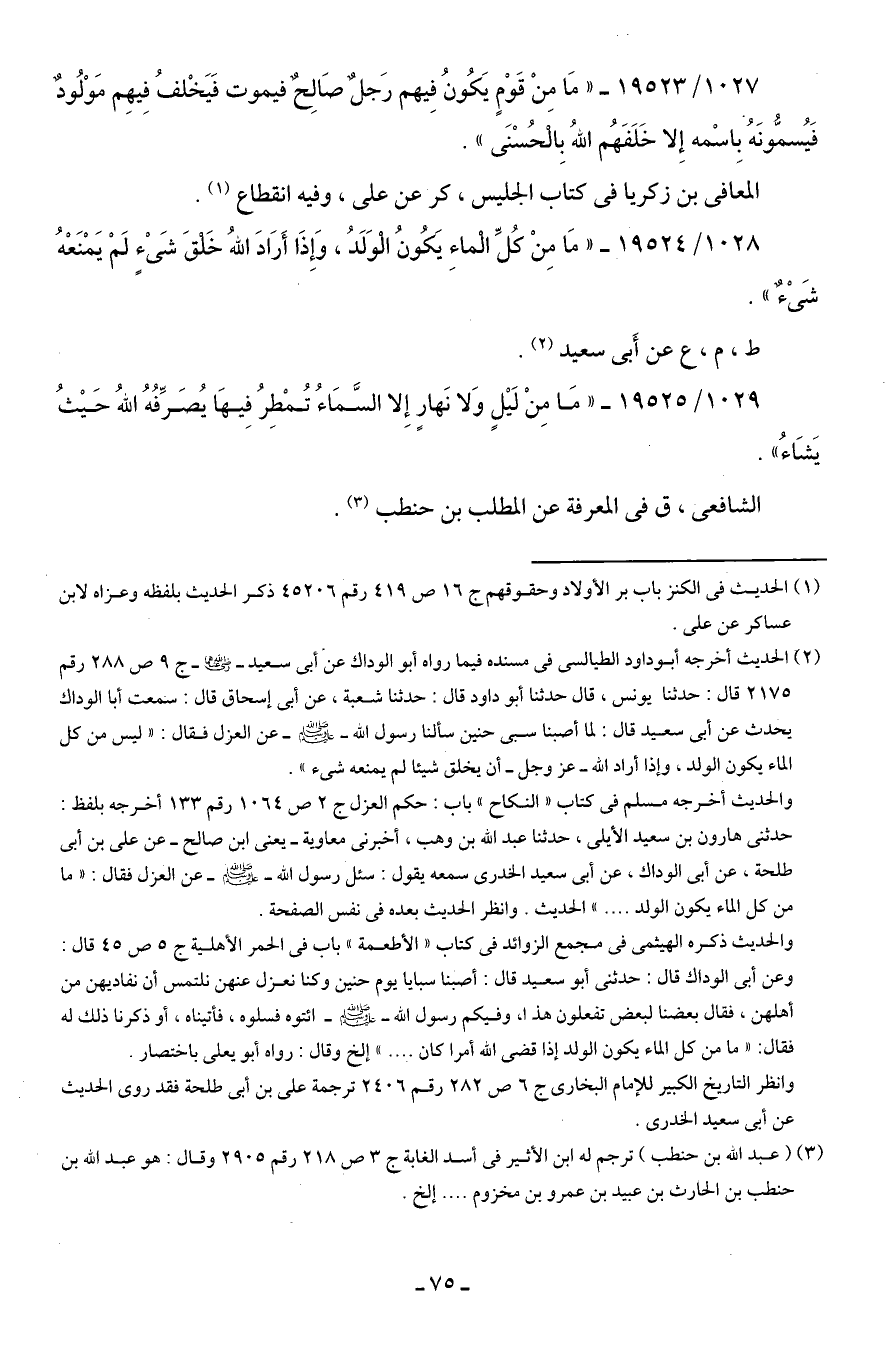 ١٠٢٧/ ١٩٥٢٣ ـ « مَا مِنْ قَوْمٍ يَكُونُ فِيهم رَجلٌ صَالِحٌ فيموت فَيَخْلفُ فِيهِم مَوْلُودٌ
فَيُسمُّونَهُ بِاسْمه إلا خَلَفَهُم اللهُ بِالْحُسْنَى » .
المعافى بن زكريا فى كتاب الجليس ، كر عن على ، وفيه انقطاع (١) .
١٠٢٨/ ١٩٥٢٤ ـ « مَا مِنْ كُلِّ الْماءِ يَكُونُ الْوَلَدُ ، وَإِذَا أَرَادَ اللهُ خَلْقَ شَىْءٍ لَمْ يَمْنَعْهُ
شَىْءٌ » .
ط ، م ، ع عن أَبى سعيد (٢) .
١٠٢٩/ ١٩٥٢٥ ـ « مَـا مِنْ لَيْلٍ وَلا نَهارٍ إلا السَّمَاءُ تُـمْطِرُ فِيـهَا يُصَـرِّفُهُ اللهُ حَـيْثُ
يَشَاءُ» .
الشافعى ، ق فى المعرفة عن المطلب بن حنطب (٣) .
(١) الحديـث فى الكنز باب بر الأولاد وحقـوقهم ج ١٦ ص ٤١٩ رقم ٤٥٢٠٦ ذكـر الحديث بلفظه وعـزاه لابن
عساكر عن على .
(٢) الحديث أخرجه أبـوداود الطيالسى فى مسنده فيما رواه أبو الوداك عن أبى سعيد ـ رضي الله عنه ـ ج ٩ ص ٢٨٨ رقم
٢١٧٥ قال : حدثنا يونس ، قال حدثنا أبو داود قال : حدثنا شعبة ، عن أبى إسحاق قال : سمعت أبا الوداك
يحدث عن أبى سعيد قال : لما أصبنا سبى حنين سألنا رسول الله ـ ﷺ ـ عن العزل فـقال : « ليس من كل
الماء يكون الولد ، وإذا أراد الله ـ عز وجل ـ أن يخلق شيئا لم يمنعه شىء » .
والحديث أخـرجه مسـلم فى كتاب « النـكاح » باب : حكم العزل ج ٢ ص ١٠٦٤ رقم ١٣٣ أخـرجه بلفظ :
حدثنى هارون بن سعيد الأيلى ، حدثنا عبد الله بن وهب ، أخبرنى معاوية ـ يعنى ابن صالح ـ عن على بن أبى
طلحة ، عن أبى الوداك ، عن أبى سعيد الخدرى سمعه يقول : سئل رسول الله ـ ﷺ ـ عن العزل فقال : « ما
من كل الماء يكون الولد .... » الحديث . وانظر الحديث بعده فى نفس الصفحة .
والحديث ذكـره الهيثمى فى مـجمع الزوائد فى كتاب « الأطعـمة » باب فى الحمر الأهلـية ج ٥ ص ٤٥ قال :
وعن أبى الوداك قال : حدثنى أبو سعـيد قال : أصبنا سبايا يوم حنين وكنا نعـزل عنهن نلتمس أن نفاديهن من
أهلهن ، فقال بعضنا لبعض تفعلون هذا، وفـيكم رسول الله ـ ﷺ ـ ائتوه فسلوه ، فأتيناه ، أو ذكرنا ذلك له
فقال: « ما من كل الماء يكون الولد إذا قضى الله أمرا كان .... » إلخ وقال : رواه أبو يعلى باختصار .
وانظر التاريخ الكبير للإمام البخارى ج ٦ ص ٢٨٢ رقـم ٢٤٠٦ ترجمة على بن أبى طلحة فقد روى الحديث
عن أبى سعيد الخدرى .
(٣) ( عـبد الله بن حنطب ) ترجم له ابن الأثـير فى أسد الغابة ج ٣ ص ٢١٨ رقم ٢٩٠٥ وقـال : هو عبـد الله بن
حنطب بن الحارث بن عبيد بن عمرو بن مخزوم .... إلخ .
ـ ٧٥ ـ